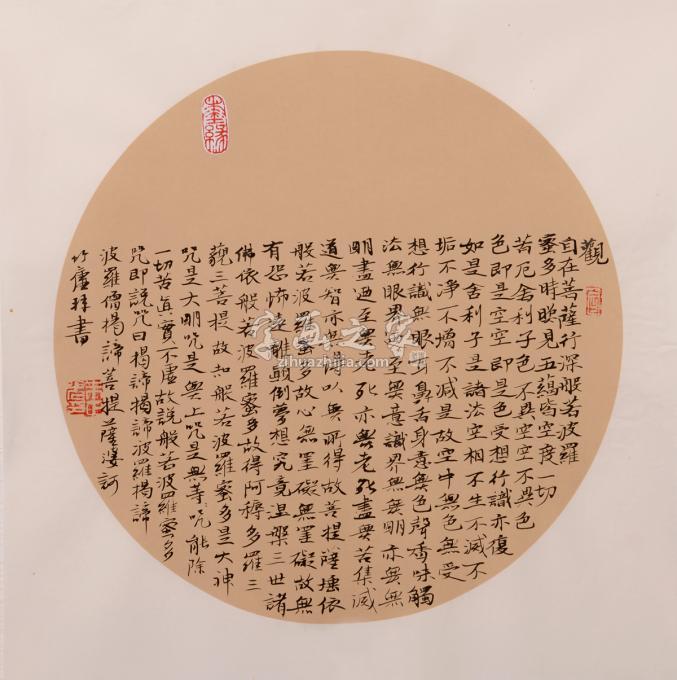 觀
自在菩薩行深般若波羅
蜜多時照見五蘊皆空度一切
苦厄舍利子色不異空空不異色
色即是空空即是色受想行識亦復
如是舍利子是諸法空相不生不滅不
垢不净不增不減是故空中無色無受
想行識無眼耳鼻舌身意無色聲香味觸
法無眼界乃至無意識界無無明亦無無
明盡迺至無老死亦無老死盡無苦集滅
道無智亦無得以無所得故菩提薩埵依
般若波羅蜜多故心無罣礙無罣礙故無
有恐怖遠離顛倒夢想究竟涅槃三世諸
佛依般若波羅蜜多故得阿耨多羅三
藐三菩提故知般若波羅蜜多是大神
咒是大明咒是無上咒是無等咒能除
一切苦真實不虛故説般若波羅蜜多
咒即説咒曰揭諦揭諦波羅揭諦
波羅僧揭諦菩提薩婆訶
竹廬拜書
墨緣
字画之家
zihuazhijia.com